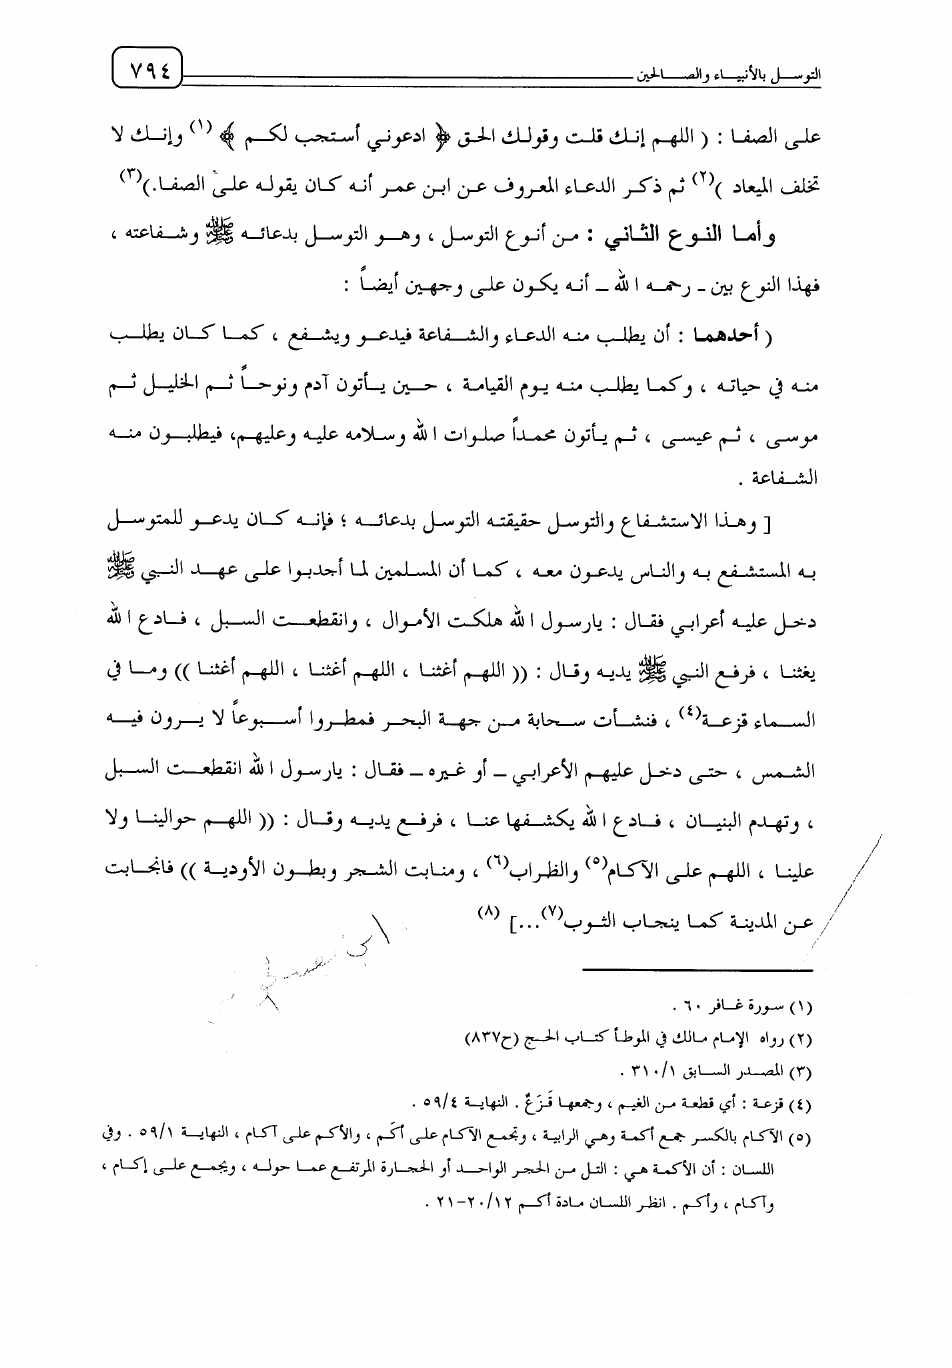 التوسل بالأنبياء والصالحين ٧٩٤
على الصفا : ( اللهم إنك قلت وقولك الحق ﴿ ادعوني أستجب لكم ﴾ (١) وإنك لا
تخلف الميعاد )(٢) ثم ذكر الدعاء المعروف عن ابن عمر أنه كان يقوله على الصفا.)(٣)
وأما النوع الثاني : من أنوع التوسل ، وهو التوسل بدعائه ﷺ وشفاعته ،
فهذا النوع بين ـ رحمه الله ـ أنه يكون على وجهين أيضاً :
( أحدهما : أن يطلب منه الدعاء والشفاعة فيدعو ويشفع ، كما كان يطلب
منه في حياته ، وكما يطلب منه يوم القيامة ، حين يأتون آدم ونوحاً ثم الخليل ثم
موسى ، ثم عيسى ، ثم يأتون محمداً صلوات الله وسلامه عليه وعليهم، فيطلبون منه
الشفاعة .
[ وهذا الاستشفاع والتوسل حقيقته التوسل بدعائه ؛ فإنه كان يدعو للمتوسل
به المستشفع به والناس يدعون معه ، كما أن المسلمين لما أجدبوا على عهد النبي ﷺ
دخل عليه أعرابي فقال : يارسول الله هلكت الأموال ، وانقطعت السبل ، فادع الله
يغثنا ، فرفع النبي ﷺ يديه وقال : (( اللهم أغثنا ، اللهم أغثنا ، اللهم أغثنا )) وما في
السماء قزعة(٤) ، فنشأت سحابة من جهة البحر فمطروا أسبوعاً لا يرون فيه
الشمس ، حتى دخل عليهم الأعرابي ـ أو غيره ـ فقال : يارسول الله انقطعت السبل
، وتهدم البنيان ، فادع الله يكشفها عنا ، فرفع يديه وقال : (( اللهم حوالينا ولا
علينا ، اللهم على الآكام(٥) والظراب(٦) ، ومنابت الشجر وبطون الأودية )) فانجابت
عن المدينة كما ينجاب الثوب(٧)...] (٨)
(١) سورة غافر ٦٠ .
(٢) رواه الإمام مالك في الموطأ كتاب الحج (ح٨٣٧)
(٣) المصدر السابق ٣١٠/١ .
(٤) قزعة : أي قطعة من الغيم ، وجمعها قَزَعٌ . النهاية ٥٩/٤ .
(٥) الآكام بالكسر جمع أكمة وهي الرابية ، وتجمع الآكام على أكم ، والأكم على آكام ، النهاية ٥٩/١ . وفي
اللسان : أن الأكمة هي : التل من الحجر الواحد أو الحجارة المرتفع عما حوله ، ويجمع على إكام ،
وآكام ، وأكم . انظر اللسان مادة أكم ٢٠/١٢-٢١ .